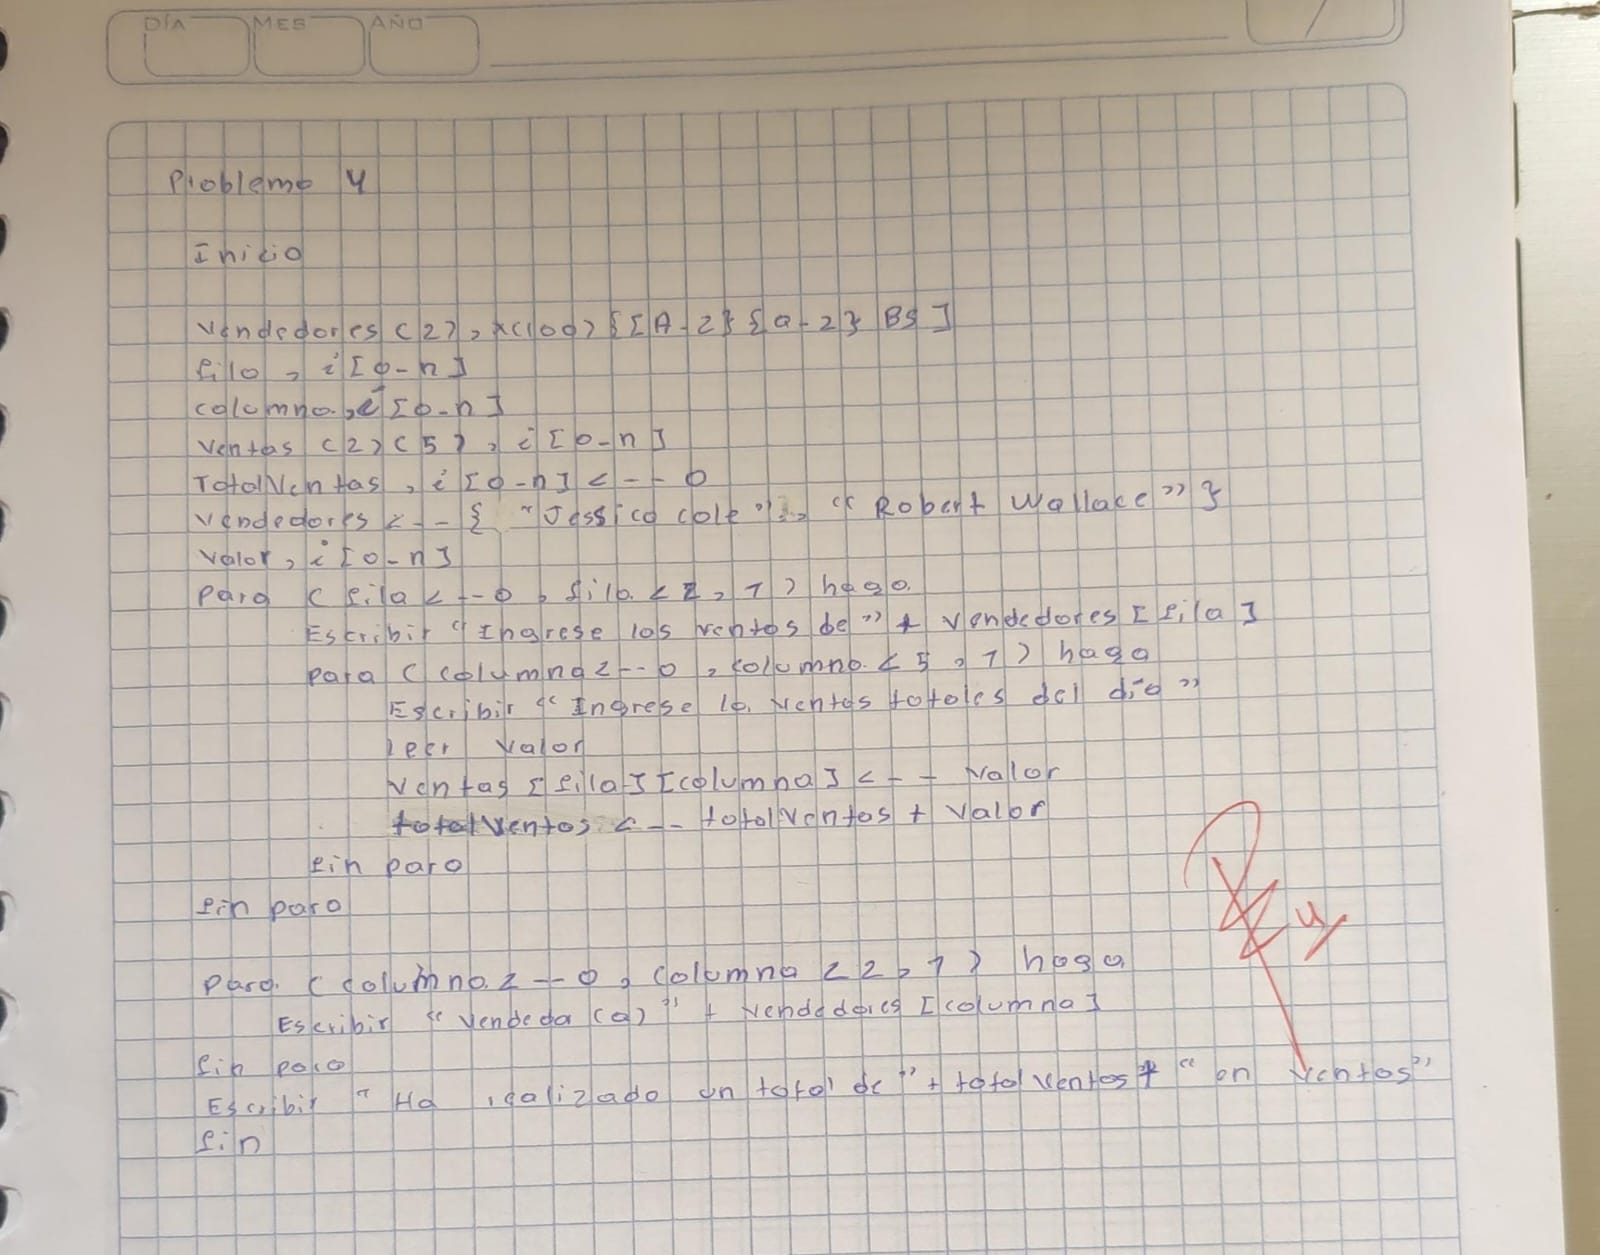 DÍA MES AÑO
Problema 4
Inicio
Vendedores (2), x(100) {[A-Z} {a-z} BS]
fila, i [0-n]
columna, i [0-n]
Ventas (2)(5), i [0-n]
TotalVentas, i [0-n] <-- 0
Vendedores <-- { "Jessica cole", "Robert Wallace" }
Valor, i [0-n]
Para (fila <-- 0, fila < 2, 1) haga
Escribir "Ingrese las ventas de" + Vendedores [fila]
para (columna <-- 0, columna < 5, 1) haga
Escribir "Ingrese la ventas totales del día"
leer valor
Ventas [fila] [columna] <-- valor
totalVentas <-- totalVentas + Valor
fin para
fin para
Para (columna <-- 0, columna < 2, 1) haga
Escribir "Vendeda (a)" + Vendedores [columna]
fin para
Escribir "Ha realizado un total de" + totalVentas + "en ventas"
fin